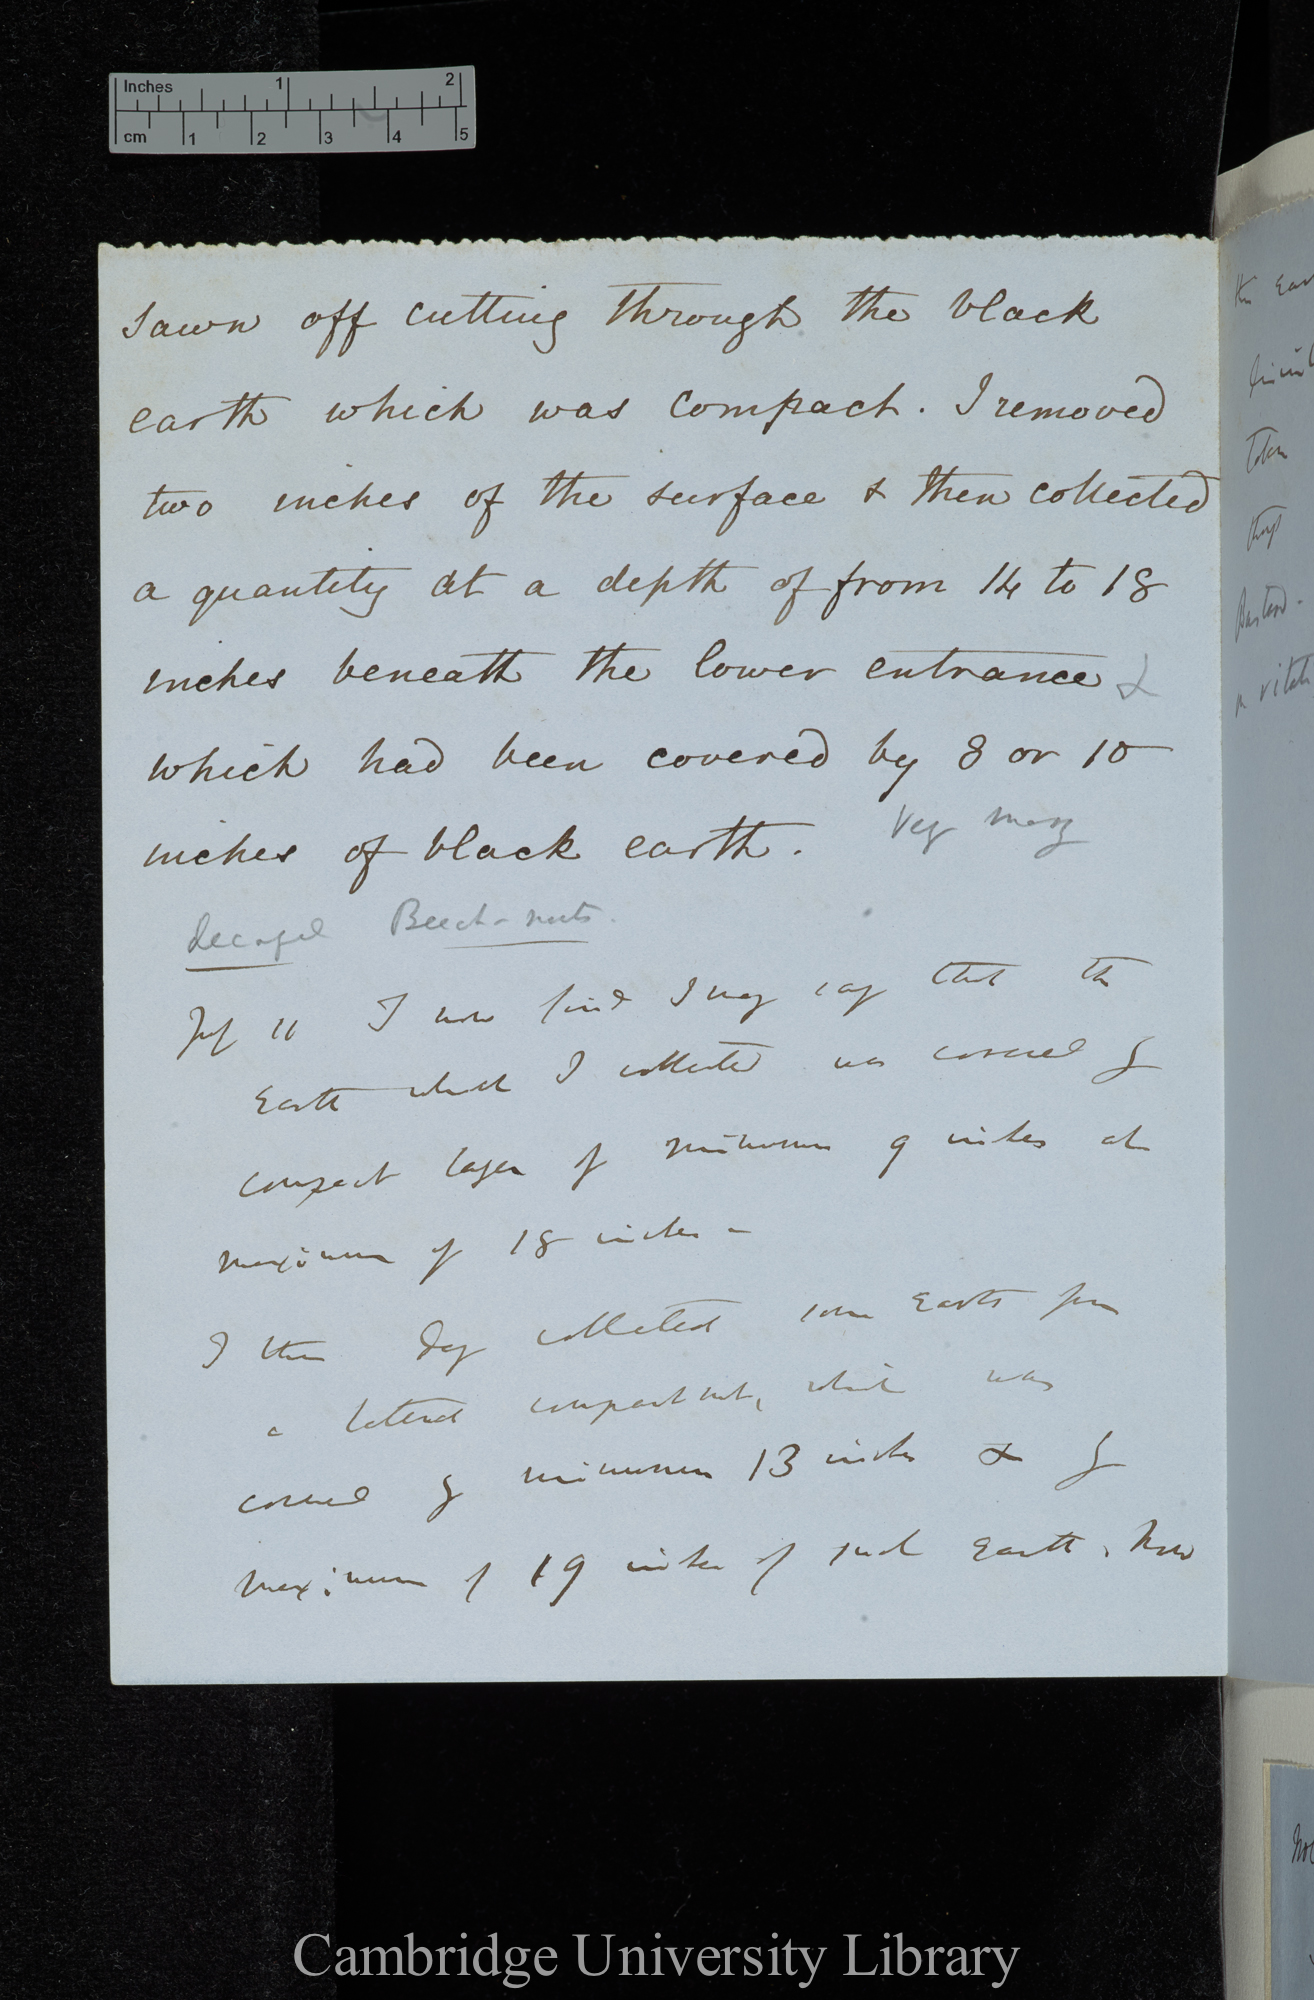 Inches 1 2
cm 1 2 3 4 5
sawn off cutting through the black
earth which was compact. I removed
two inches of the surface & then collected
a quantity at a depth of from 14 to 18
inches beneath the lower entrance &
which had been covered by 8 or 10
inches of black earth. Very many
decayed Beech-nuts.
I now find I may say that the
Earth which I collected was covered by
compact layer of minimum 9 inches at
maximum of 18 inches –
I then day collected some Earth from
a lateral compartment, which was
covered by minimum 13 inches & by
maximum of 19 inches of such Earth. Now
Cambridge University Library